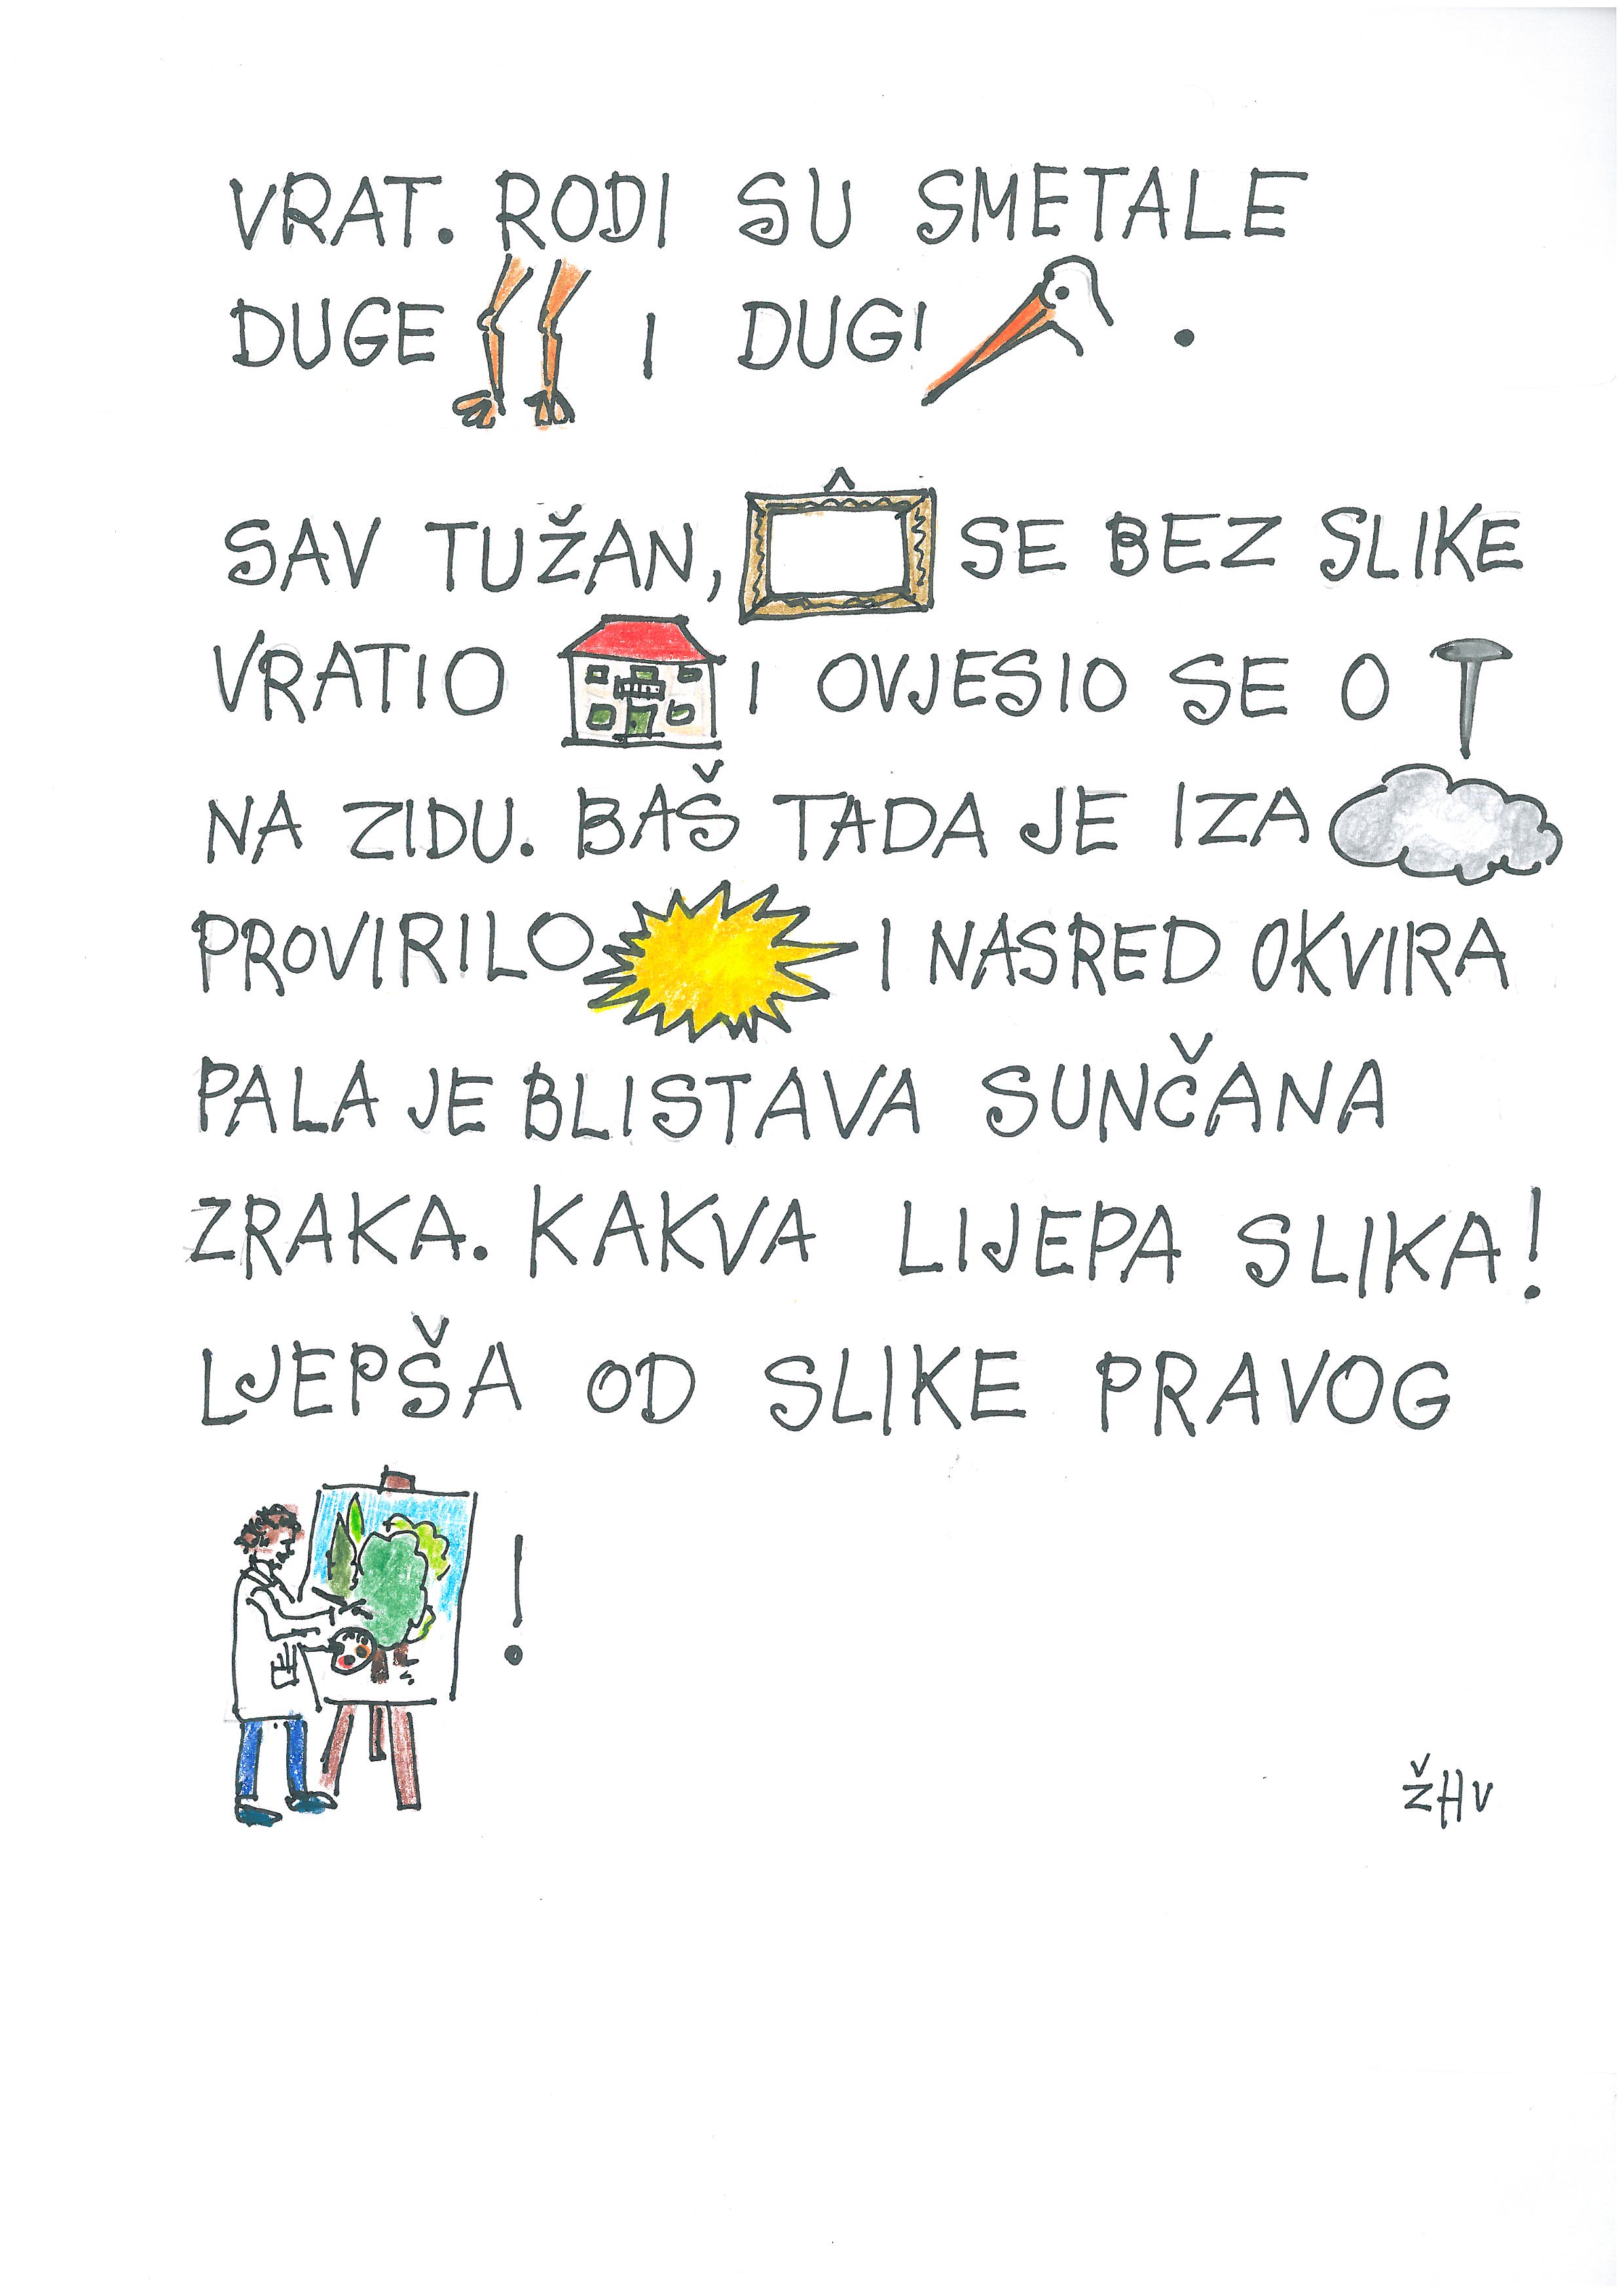 VRAT. RODI SU SMETALE
DUGE I DUGI .
SAV TUŽAN, SE BEZ SLIKE
VRATIO I OVJESIO SE O
NA ZIDU. BAŠ TADA JE IZA
PROVIRILO I NASRED OKVIRA
PALA JE BLISTAVA SUNČANA
ZRAKA. KAKVA LIJEPA SLIKA!
LJEPŠA OD SLIKE PRAVOG
!
ŽHV